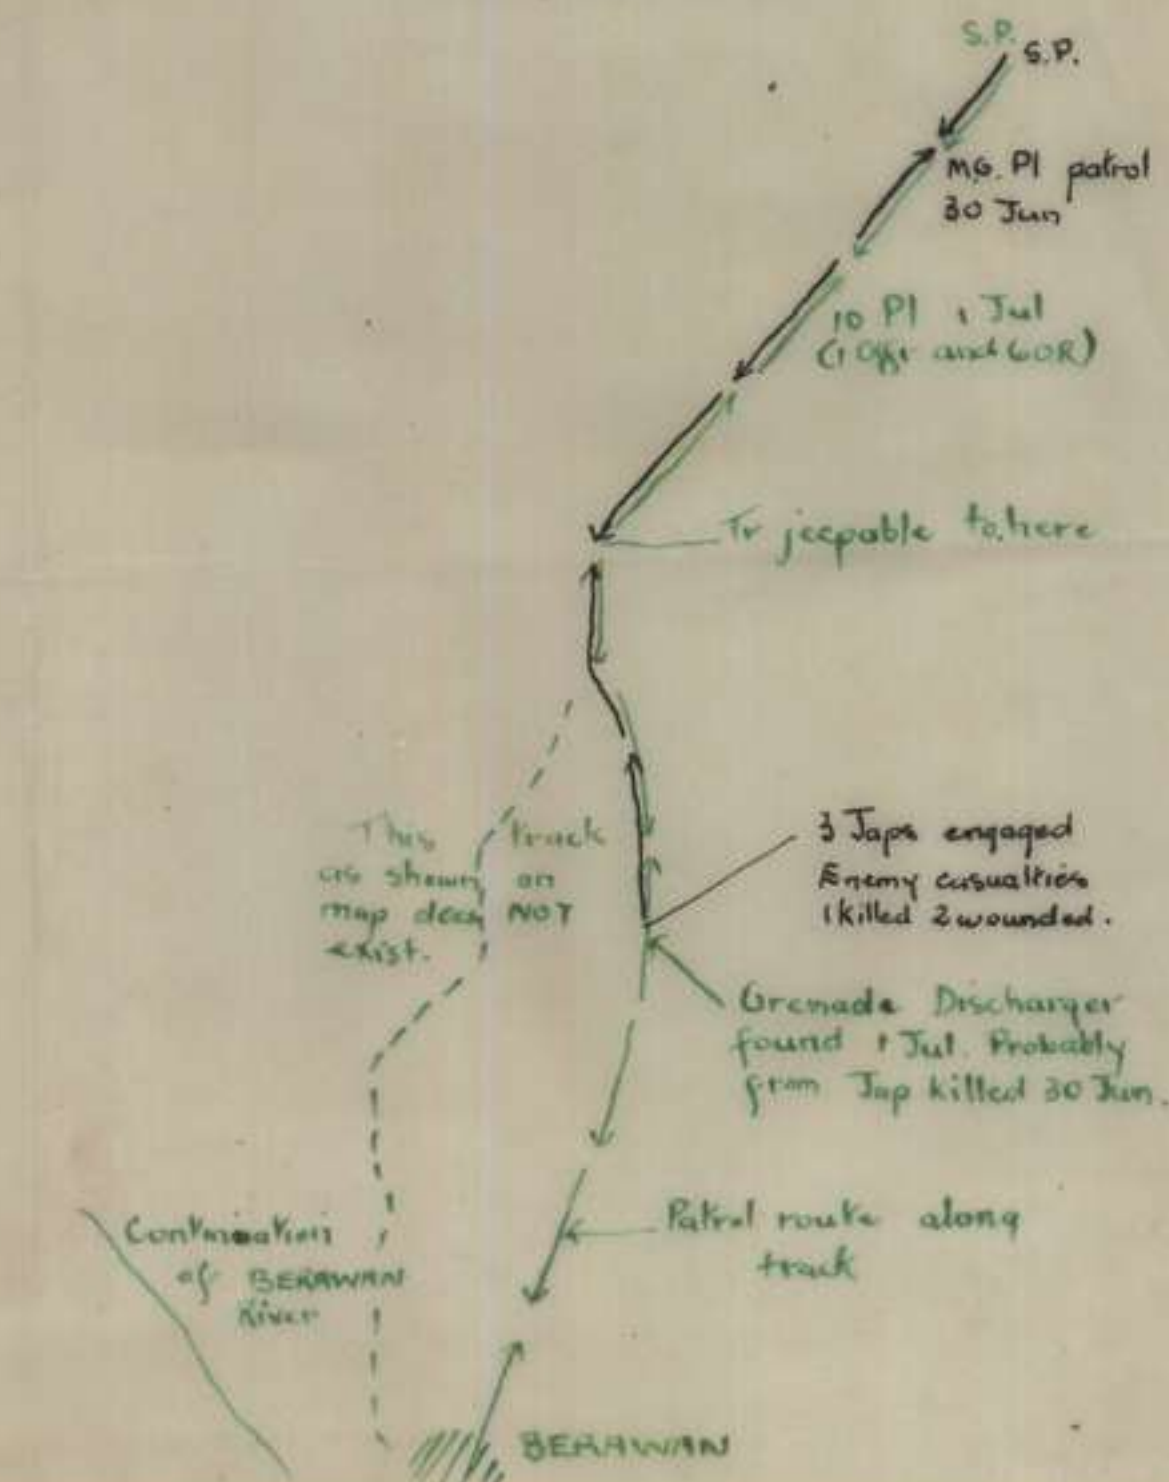 S.P.
S.P.
M.G. Pl patrol
30 Jun
10 Pl 1 Jul
(1 Offr and 6 OR)
Tr jeepable to here
This track
as shown on
map does NOT
exist.
3 Japs engaged
Enemy casualties
1 killed 2 wounded.
Grenade Discharger
found 1 Jul. Probably
from Jap killed 30 Jun.
Patrol route along
track
Continuation
of BERAWAN
River
BERAWAN